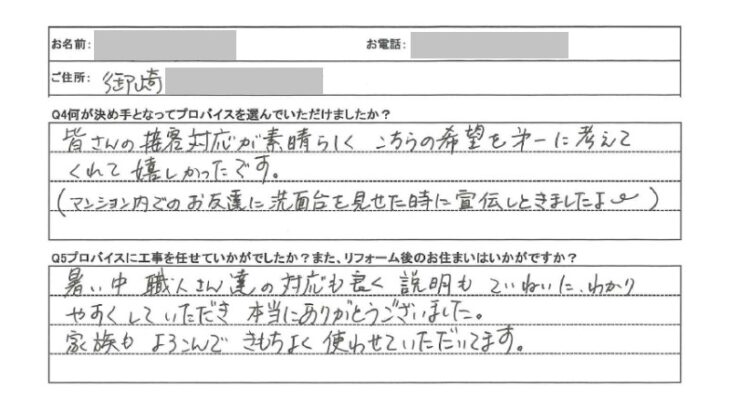 お名前: お電話:
ご住所: 御崎
Q4何が決め手となってプロバイスを選んでいただけましたか？
皆さんの接客対応が素晴らしく こちらの希望を第一に考えて
くれて嬉しかったです。
(マンション内でのお友達に洗面台を見せた時に宣伝しときましたよ〜)
Q5プロバイスに工事を任せていかがでしたか？また、リフォーム後のお住まいはいかがですか？
暑い中 職人さん達の対応も良く 説明も ていねいに、わかり
やすくしていただき 本当にありがとうございました。
家族も よろこんで きもちよく 使わせていただいてます。